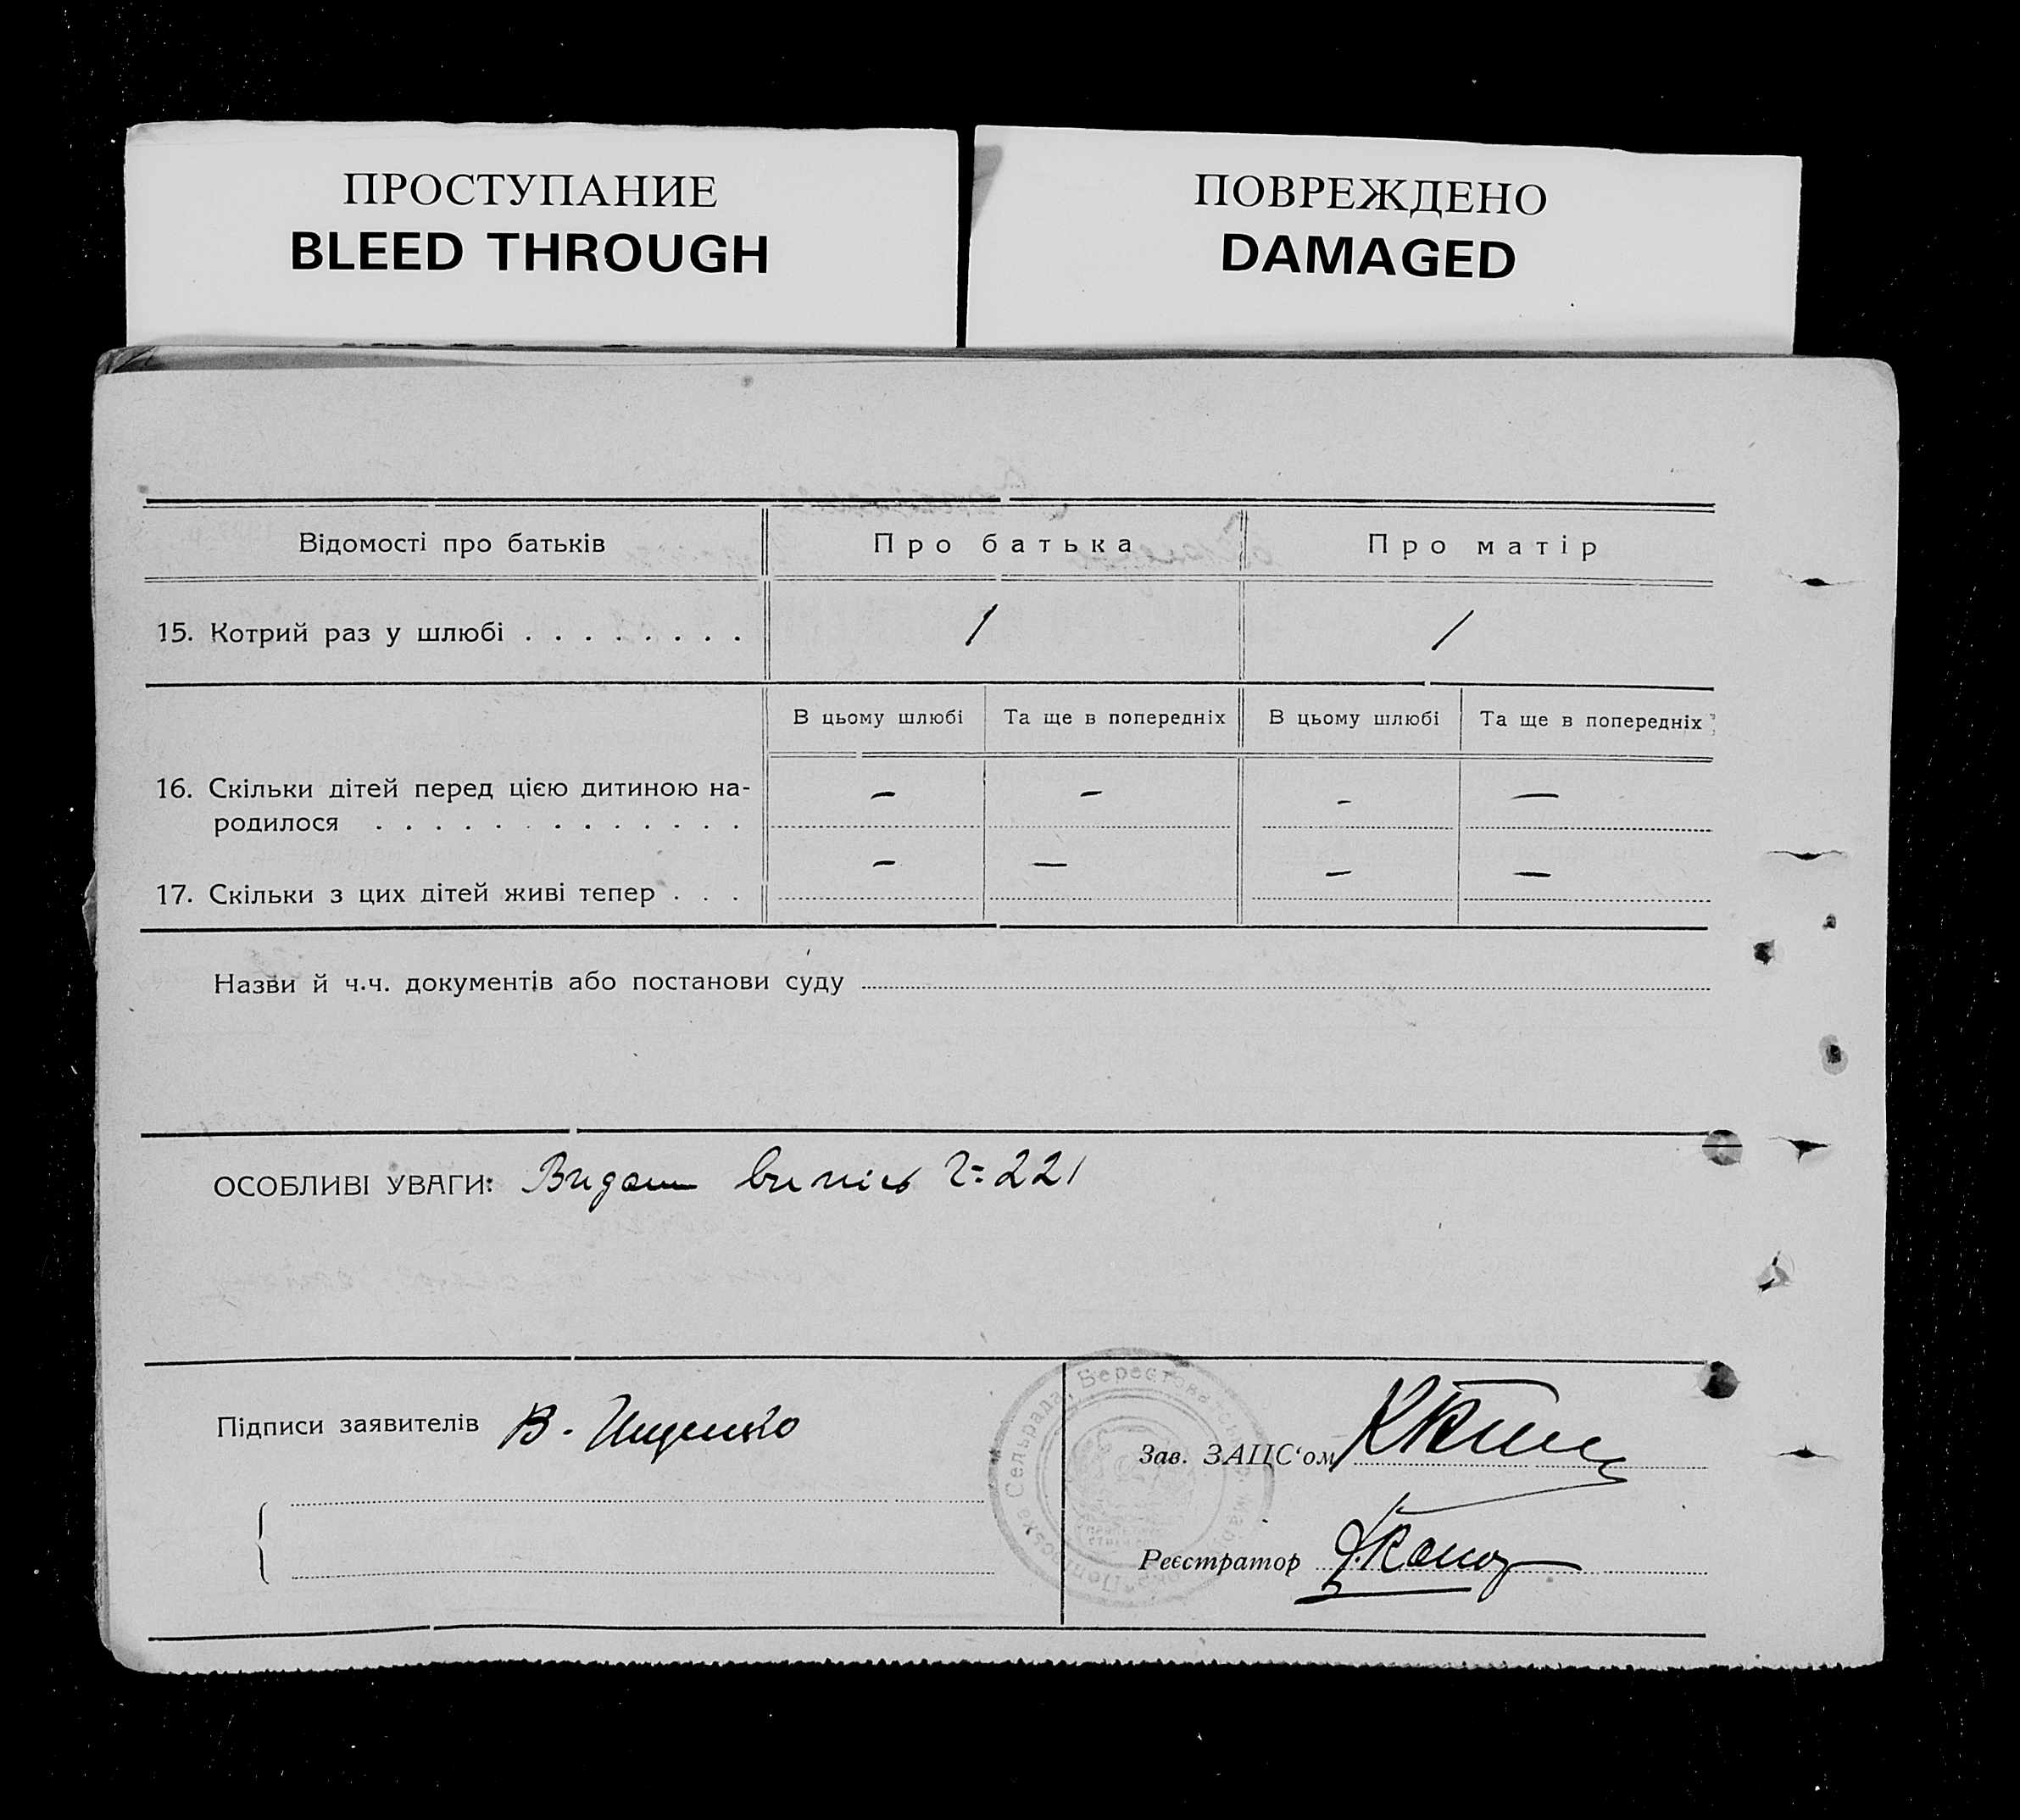 ПРОСТУПАНИЕ
BLEED THROUGH
ПОВРЕЖДЕНО
DAMAGED
Відомості про батьків
Про батька
Про матір
15. Котрий раз у шлюбі . . . . . . . .
1
1
В цьому шлюбі
Та ще в попередніх
В цьому шлюбі
Та ще в попередніх
16. Скільки дітей перед цією дитиною на-
родилося . . . . . . . . . . . . .
– – – –
17. Скільки з цих дітей живі тепер . . .
– – – –
Назви й ч.ч. документів або постанови суду
ОСОБЛИВІ УВАГИ: Видан випис Ч: 221
Підписи заявителів В. Ищенко
Сельрада, Берестов
Зав. ЗАЦС‘ом
Реєстратор